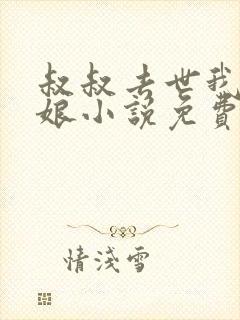 叔叔去世我
娘小說免費
情淺雪